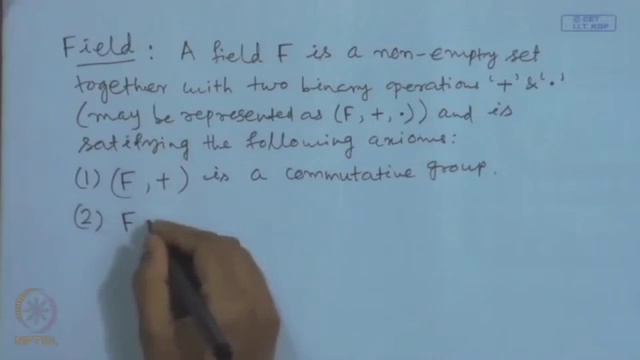 © CET
I.I.T. KGP
Field : A field F is a non-empty set
together with two binary operations '+' & '.'
(may be represented as (F, +, .)) and is
satisfying the following axioms:
(1) (F, +) is a commutative group.
(2) F
NPTEL